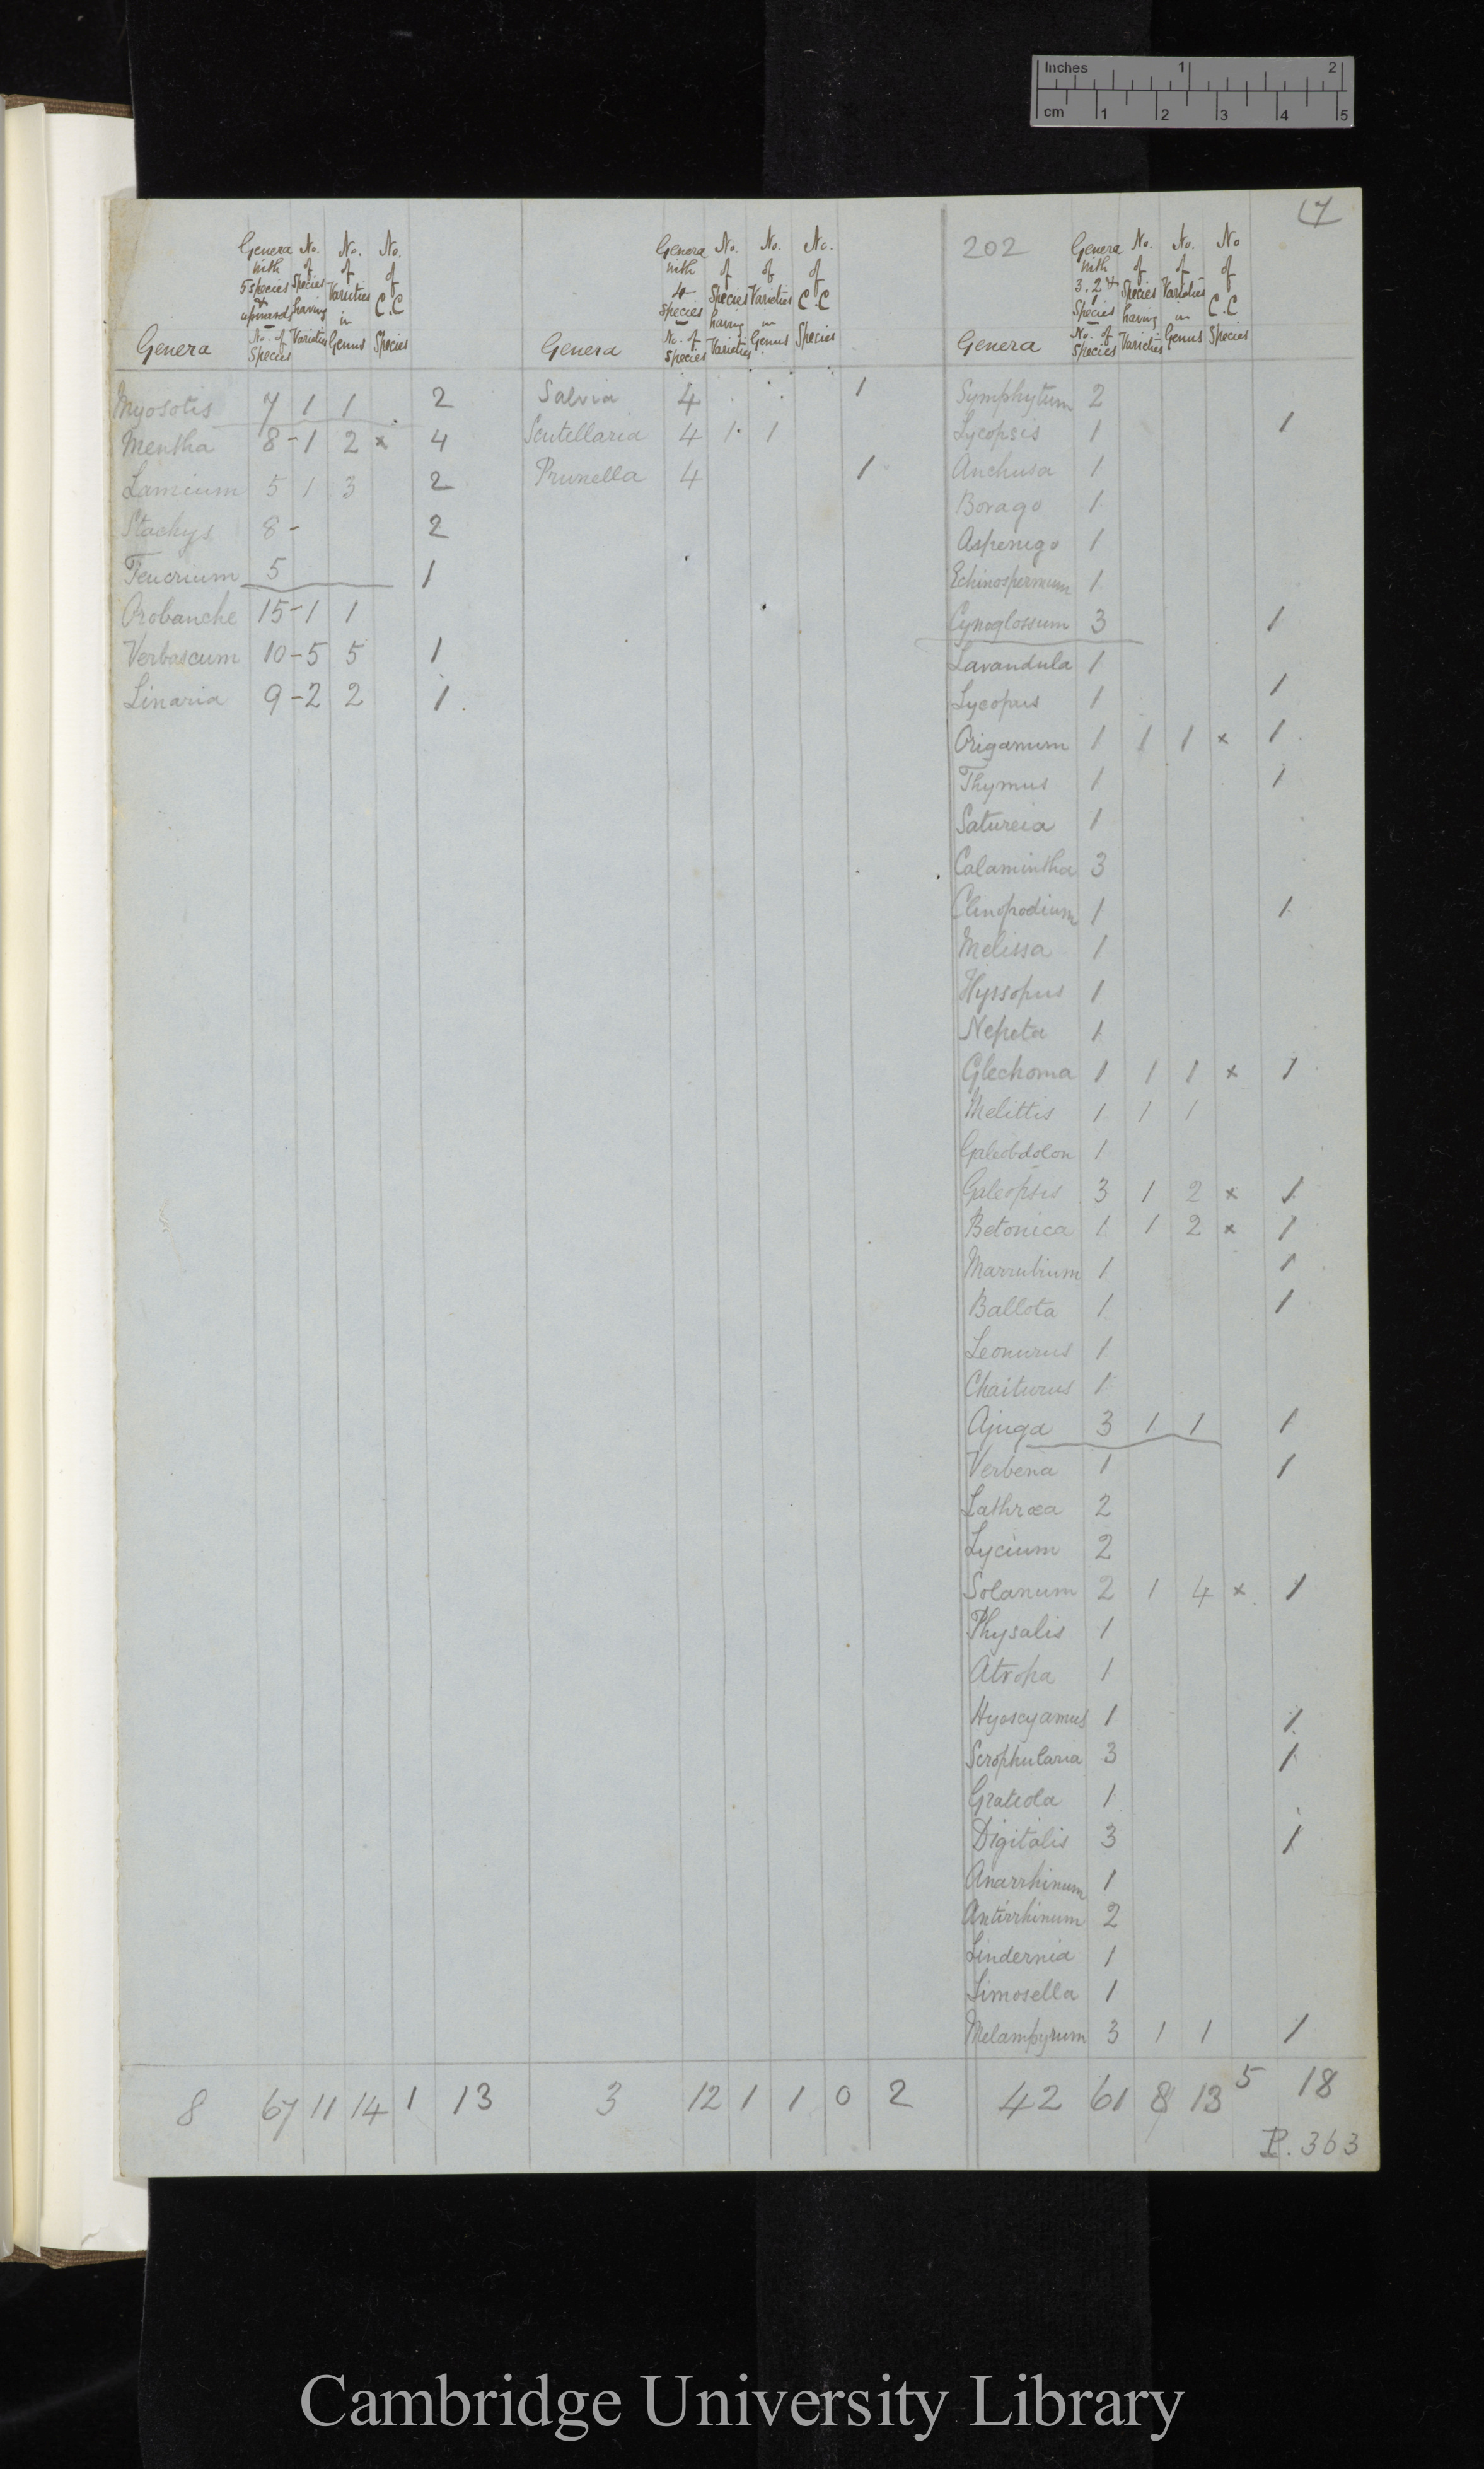 Inches 1 2
cm 1 2 3 4 5
17
202
Genera
Genera with 5 species & upwards
No. of Species
No. of Species having Varieties
No. of Varieties in Genus
No. of C.C Species
Myosotis 7 1 1 2
Mentha 8 - 1 2 x 4
Lamium 5 1 3 2
Stachys 8 - 2
Teucrium 5 1
Orobanche 15 - 1 1
Verbascum 10 - 5 5 1
Linaria 9 - 2 2 1
8 67 11 14 1 13
Genera
Genera with 4 species
No. of Species
No. of Species having Varieties
No. of Varieties in Genus
No. of C.C Species
Salvia 4 1
Scutellaria 4 1 1
Prunella 4 1
3 12 1 1 0 2
Genera
Genera with 3. 2 & 1 Species
No. of Species
No. of Species having Varieties
No. of Varieties in Genus
No of C.C Species
Symphytum 2
Lycopsis 1 1
Anchusa 1
Borago 1
Asperugo 1
Echinospermum 1
Cynoglossum 3 1
Lavandula 1
Lycopus 1 1
Origanum 1 1 1 x 1
Thymus 1 1
Satureia 1
Calamintha 3
Clinopodium 1 1
Melissa 1
Hyssopus 1
Nepeta 1
Glechoma 1 1 1 x 1
Melittis 1 1 1
Galeobdolon 1
Galeopsis 3 1 2 x 1
Betonica 1 1 2 x 1
Marrubium 1 1
Ballota 1 1
Leonurus 1
Chaiturus 1
Ajuga 3 1 1 1
Verbena 1 1
Lathræa 2
Lycium 2
Solanum 2 1 4 x 1
Physalis 1
Atropa 1
Hyoscyamus 1 1
Scrophularia 3 1
Gratiola 1
Digitalis 3 1
Anarrhinum 1
Antirrhinum 2
Lindernia 1
Limosella 1
Melampyrum 3 1 1 1
42 61 8 13 5 18
P. 363
Cambridge University Library